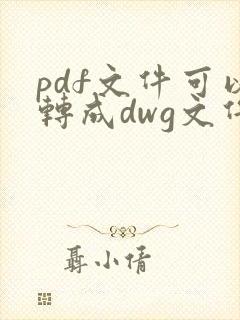 pdf文件可以
轉成dwg文件
聶小倩